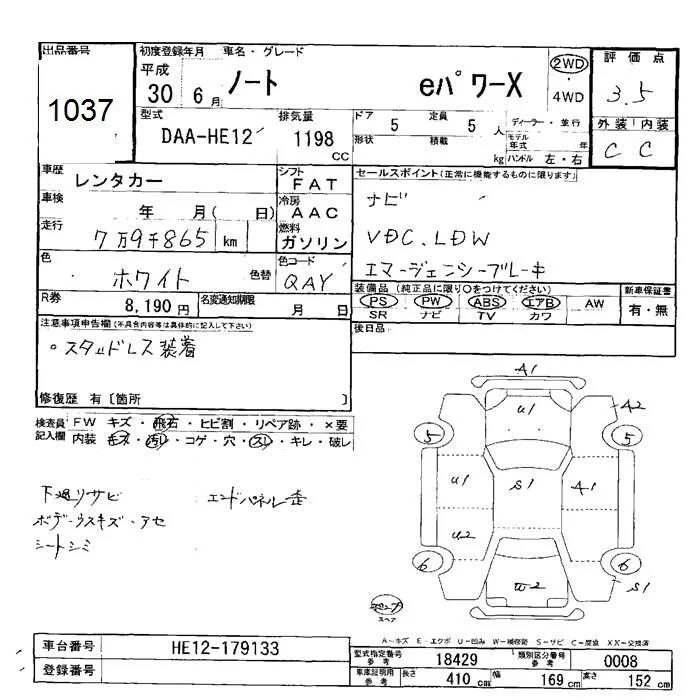 出品番号
1037
初度登録年月 車名・グレード
平成 30 6月 ノート eパワーX
2WD
4WD
評価点
3.5
外装 内装
C C
型式
DAA-HE12
排気量
1198 CC
ドア 5 定員 5 人
形状 積載 kg
ディーラー・並行
モデル年式 年
ハンドル 左・右
車歴
レンタカー
シフト
FAT
車検
年 月( 日)
冷房
AAC
走行
7万9千865 km
燃料
ガソリン
色
ホワイト 色替
色コード
QAY
R券
8,190円
名変通知期限
月 日
セールスポイント(正常に機能するものに限ります)
ナビ
VDC、LDW
エマージェンシーブレーキ
装備品 (純正品に限り○をつけてください)
PS PW ABS エアB AW
SR ナビ TV カワ
新車保証書
有・無
後日品
注意事項申告欄(不具合内容等は具体的に記入して下さい)
○スタッドレス装着
修復歴 有〔箇所 〕
検査員記入欄
FW キズ・飛石・ヒビ割・リペア跡・×要
内装 キズ・汚レ・コゲ・穴・スレ・キレ・破レ
下廻リサビ エンドパネル歪
ボデーウスキズ・アセ
シートシミ
A1
U1 A2
5 5
U1 S1 A1
U2
6 6
W2 S1
スペア
A-キズ E-エクボ U-凹み W-補修跡 S-サビ C-腐食 XX-交換済
車台番号
HE12-179133
登録番号
型式指定番号 参考
18429
類別区分番号 参考
0008
車庫証明用 参考
長さ 410 cm 幅 169 cm 高さ 152 cm